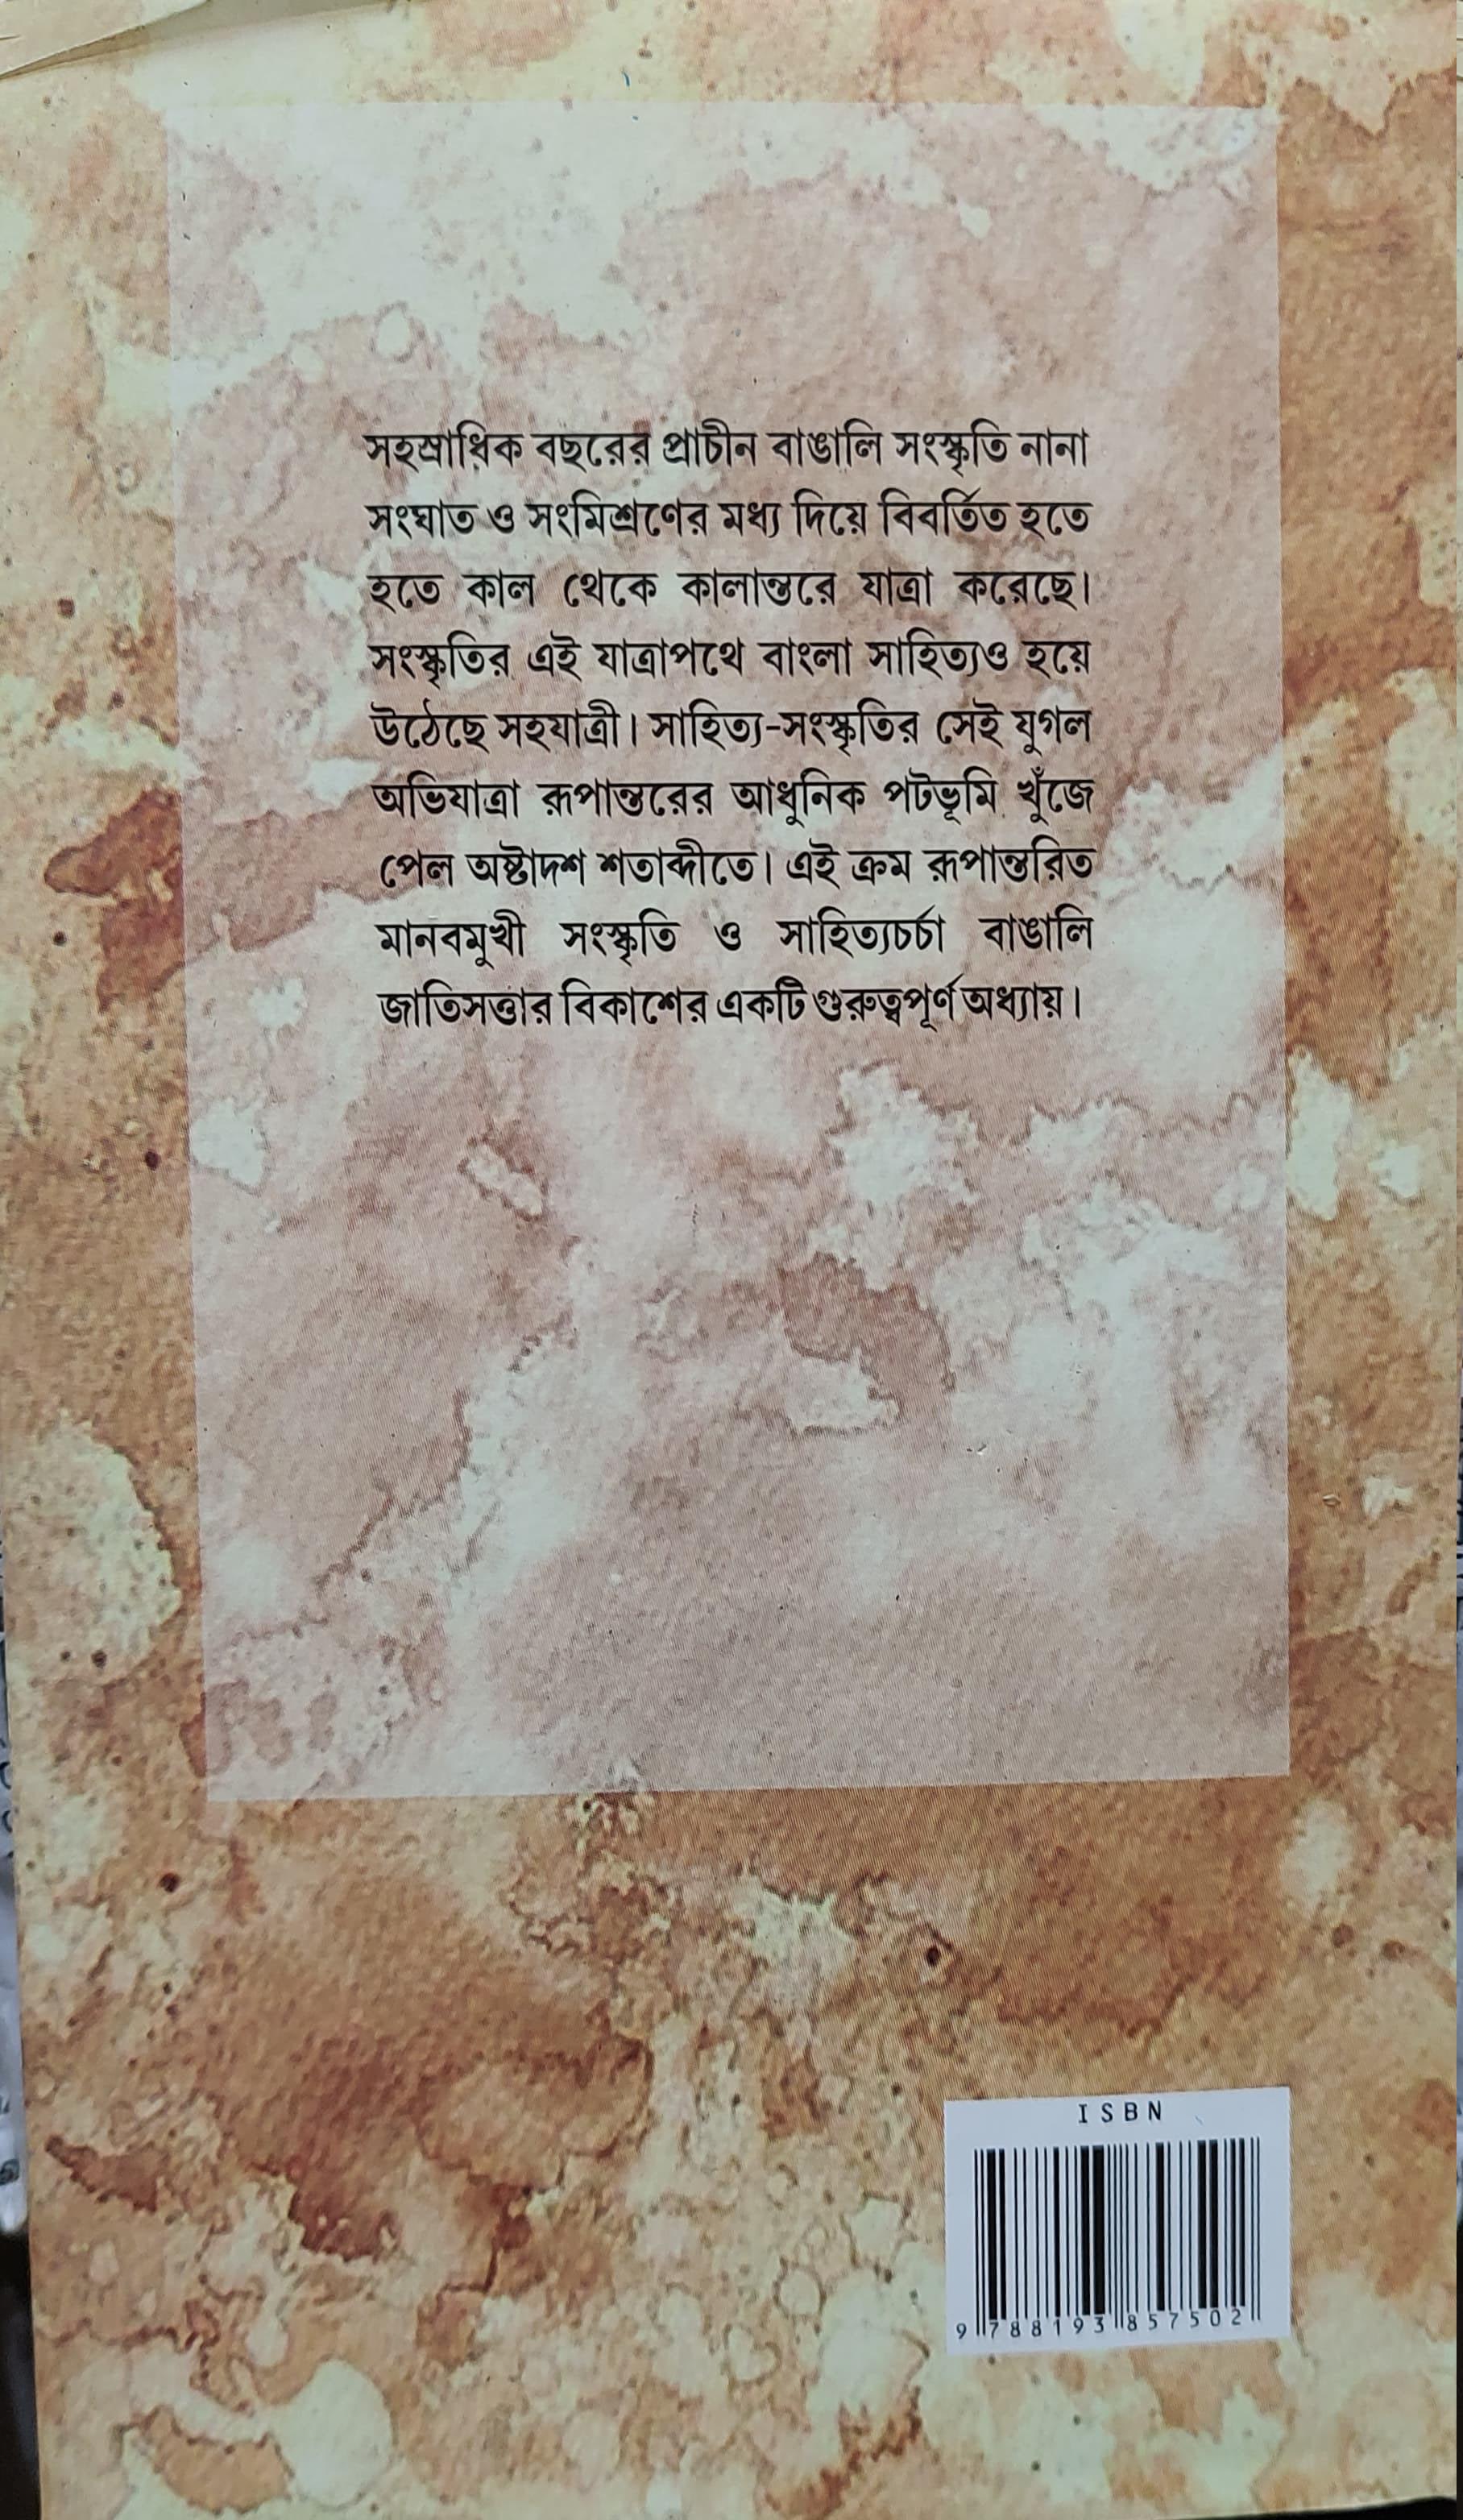 সহস্রাধিক বছরের প্রাচীন বাঙালি সংস্কৃতি নানা
সংঘাত ও সংমিশ্রণের মধ্য দিয়ে বিবর্তিত হতে
হতে কাল থেকে কালান্তরে যাত্রা করেছে।
সংস্কৃতির এই যাত্রাপথে বাংলা সাহিত্যও হয়ে
উঠেছে সহযাত্রী। সাহিত্য-সংস্কৃতির সেই যুগল
অভিযাত্রা রূপান্তরের আধুনিক পটভূমি খুঁজে
পেল অষ্টাদশ শতাব্দীতে। এই ক্রম রূপান্তরিত
মানবমুখী সংস্কৃতি ও সাহিত্যচর্চা বাঙালি
জাতিসত্তার বিকাশের একটি গুরুত্বপূর্ণ অধ্যায়।
ISBN
9 788193 857502